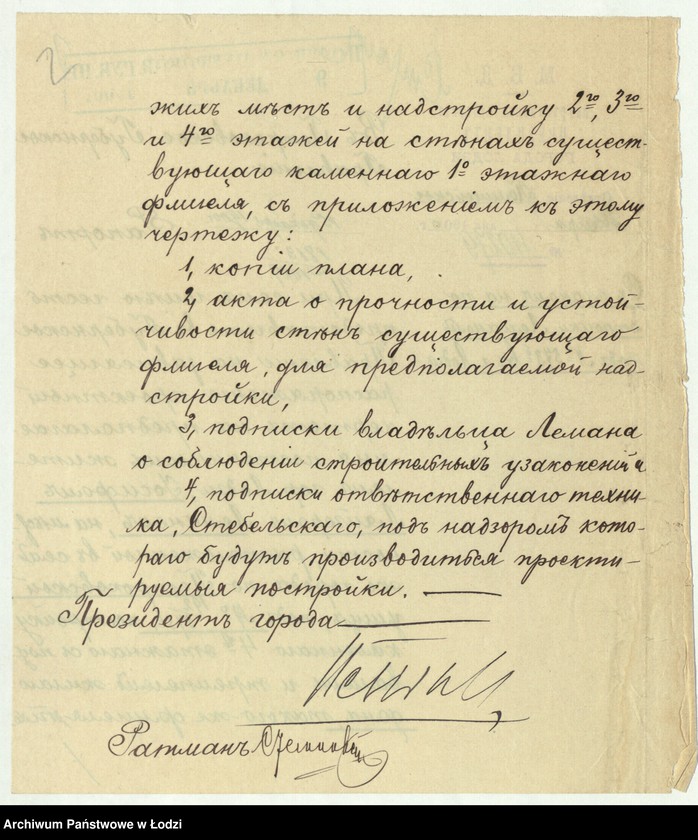 2
жихъ мѣстъ и надстройку 2го, 3го
и 4го этажей на стѣнахъ сущест-
вующаго каменнаго 1о этажнаго
флигеля, съ приложеніемъ къ этому
чертежу:
1, копіи плана,
2, акта о прочности и устой-
чивости стѣнъ существующаго
флигеля, для предполагаемой над-
стройки,
3, подписки владѣльца Лемана
о соблюденіи строительныхъ узаконеній и
4, подписки отвѣтственнаго техни-
ка, Стебельскаго, подъ надзоромъ кото-
раго будутъ производиться проекти-
руемыя постройки.
Президентъ города
Ратманъ
Archiwum Państwowe w Łodzi